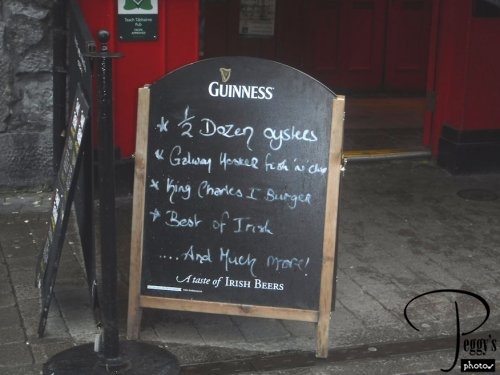 GUINNESS
GUINNESS
* 1/2 Dozen oysters
* Galway Hooker fish 'n' chip
* King Charles I Burger
* Best of Irish
....And Much more!
A taste of IRISH BEERS
Peggy's
photos